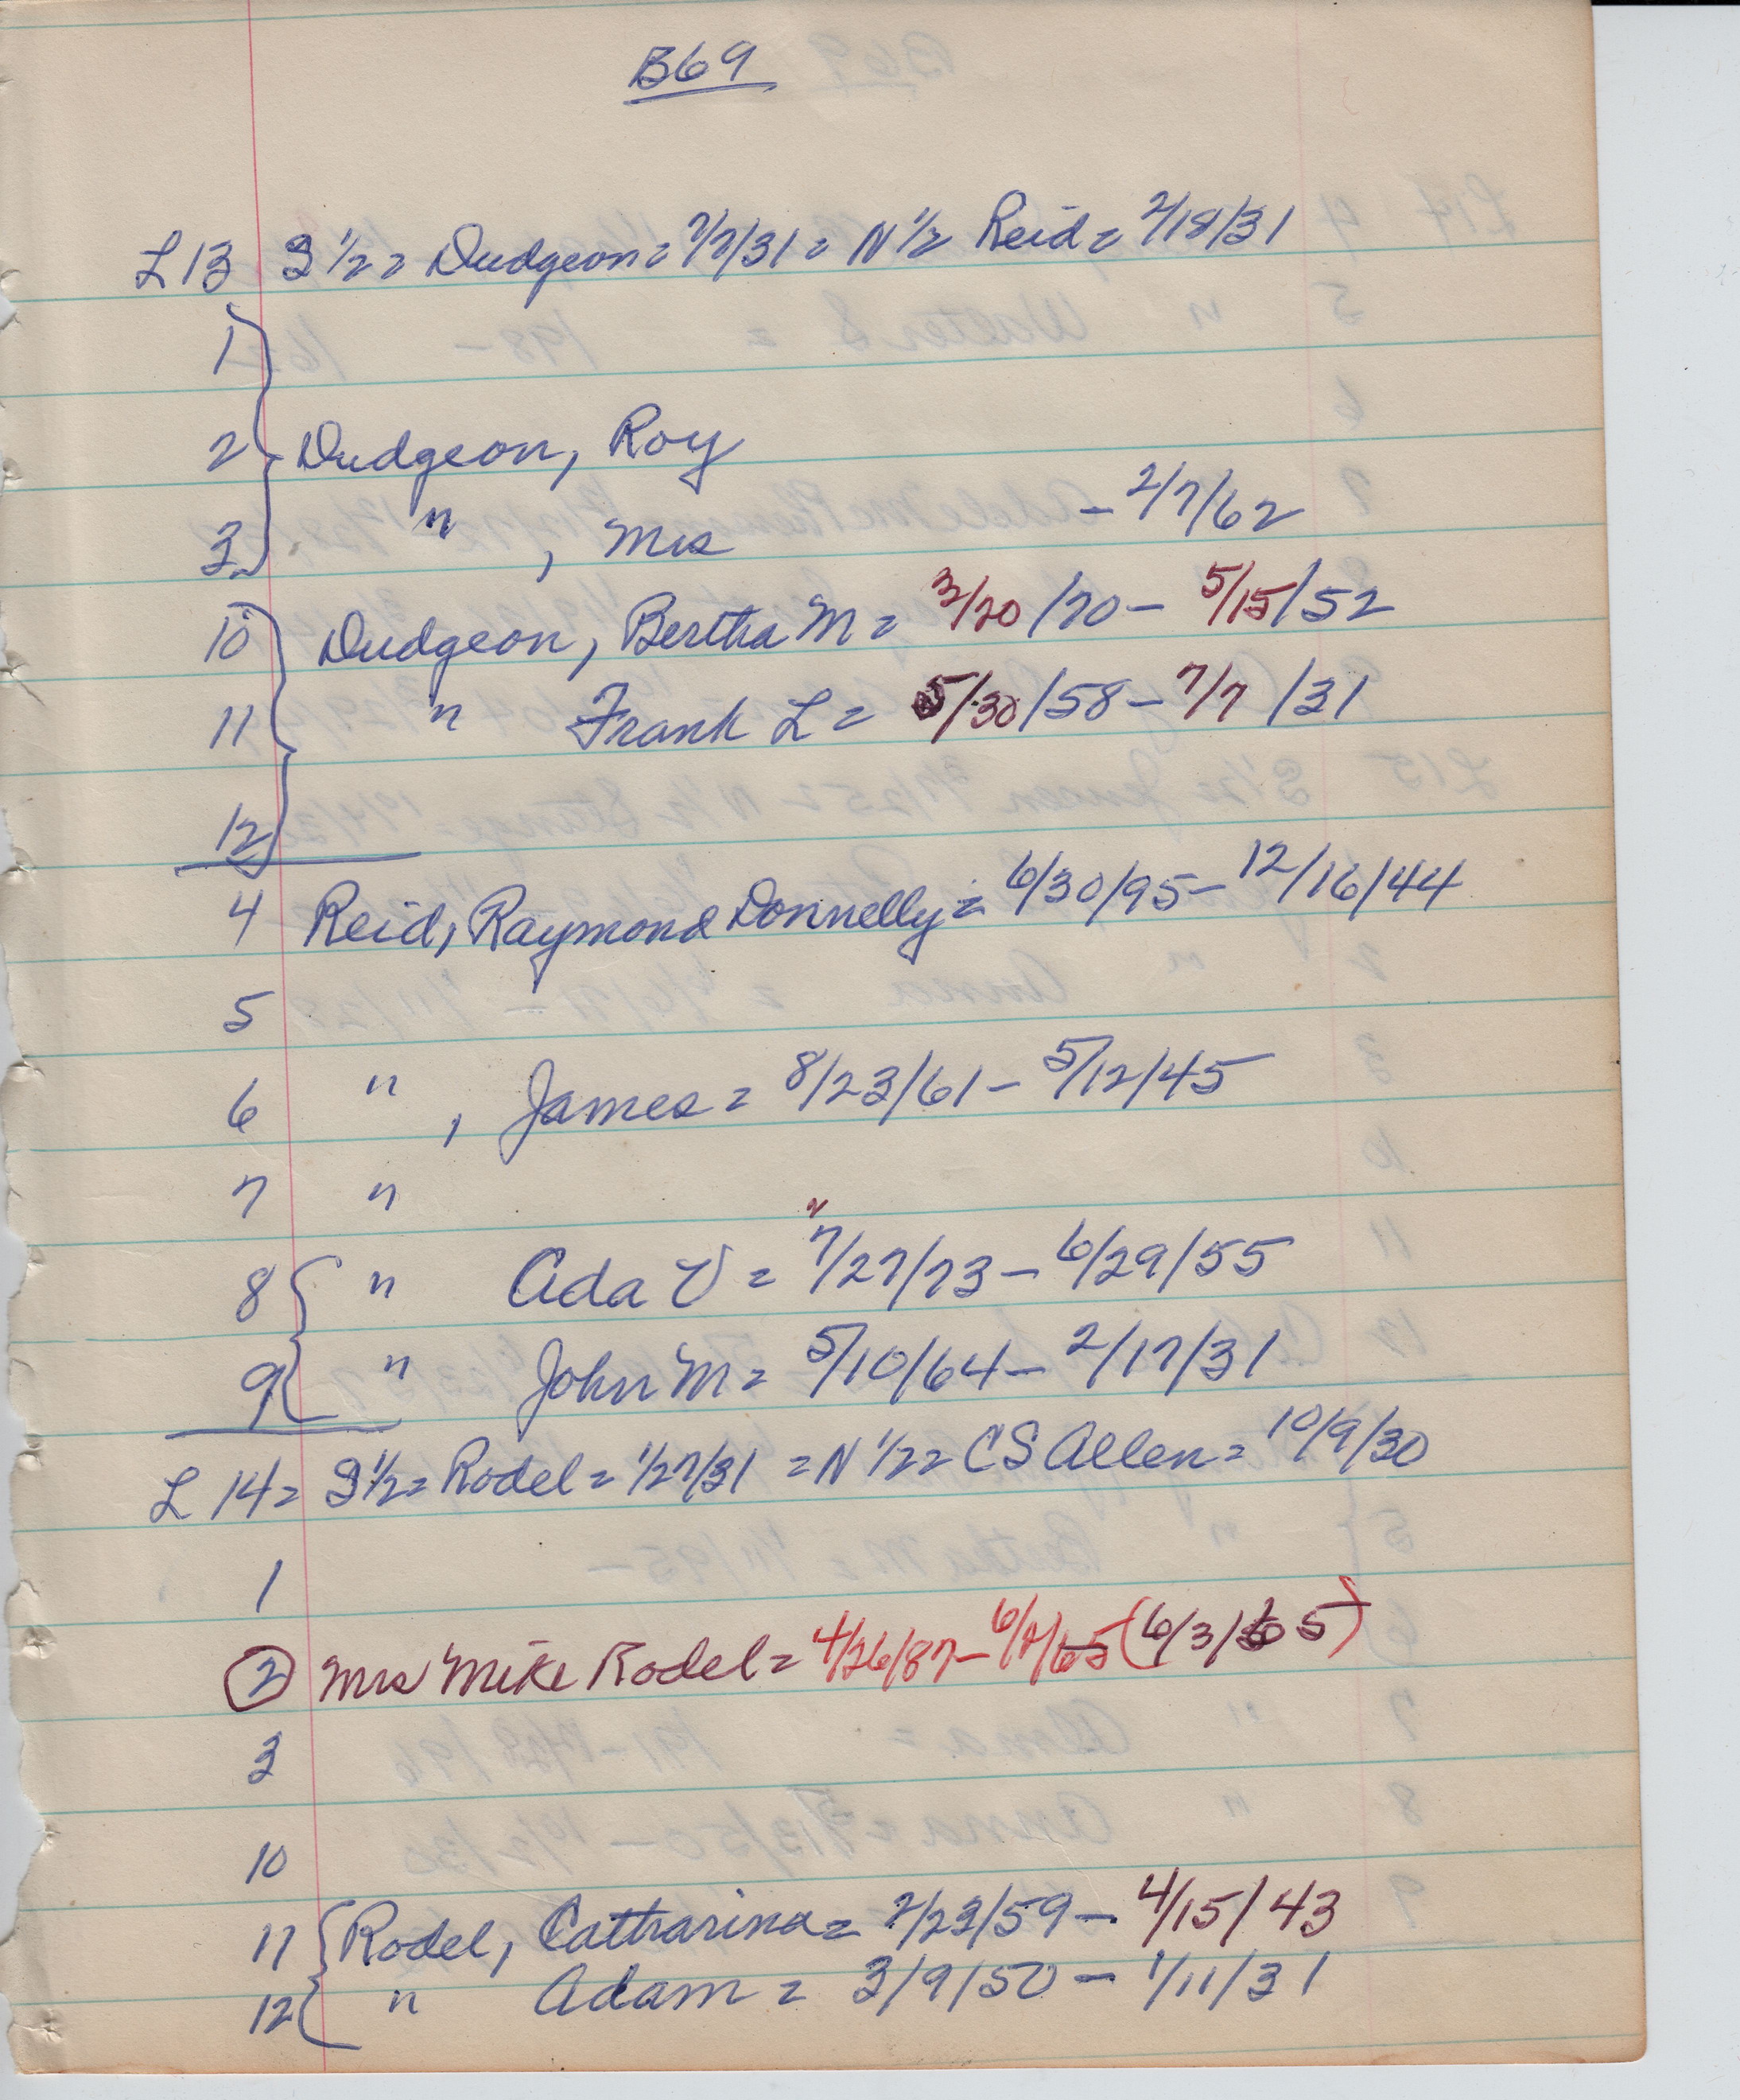 B69
L13 S 1/2 = Dudgeon = 7/7/31 = N 1/2 Reid = 2/18/31
1
2 Dudgeon, Roy
3 " , Mrs - 2/7/62
10 Dudgeon, Bertha M = 3/20/70 - 5/15/52
11 " Frank L = 5/30/58 - 7/7/31
12
4 Reid, Raymond Donnelly = 6/30/95 - 12/16/44
5
6 " , James = 8/23/61 - 5/12/45
7 "
8 " Ada V = 7/27/73 - 6/29/55
9 " John M = 5/10/64 - 2/17/31
L 14 = S 1/2 = Rodel = 1/27/31 = N 1/2 = CS Allen = 10/9/30
1
2 Mrs Mike Rodel = 4/26/87 - (6/3/65)
3
10
11 Rodel, Catharina = 2/23/59 - 4/15/43
12 " Adam = 3/9/50 - 1/11/31